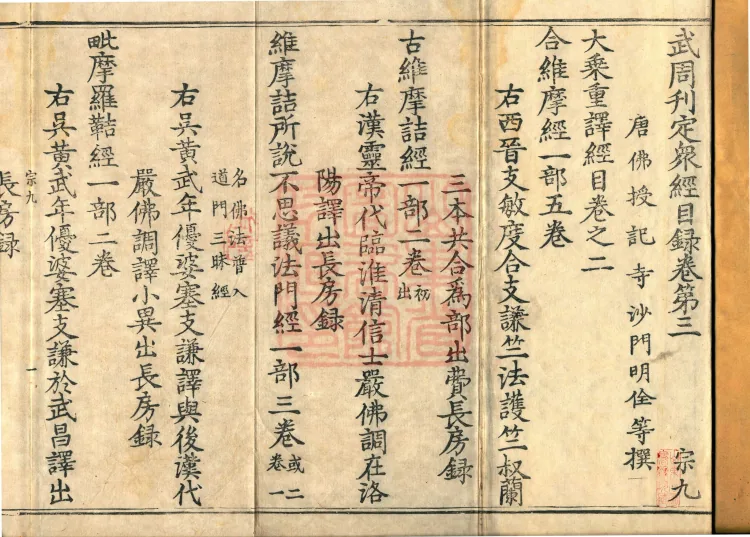 武周刊定衆經目録卷第三 宗九
唐佛授記寺沙門明佺等撰
大乗重譯經目卷之二
合維摩經一部五卷
右西晉支敏度合支謙竺法護竺叔蘭
三本共合爲部出費長房録
古維摩詰經一部二卷初出
右漢靈帝代臨淮清信士嚴佛調在洛
陽譯出長房録
維摩詰所說不思議法門經一部三卷或二卷一
名佛法普入
道門三昧經
右呉黃武年優婆塞支謙譯與後漢代
嚴佛調譯小異出長房録
毗摩羅鞊經一部二卷
右呉黃武年優婆塞支謙於武昌譯出
宗九 一
長房録